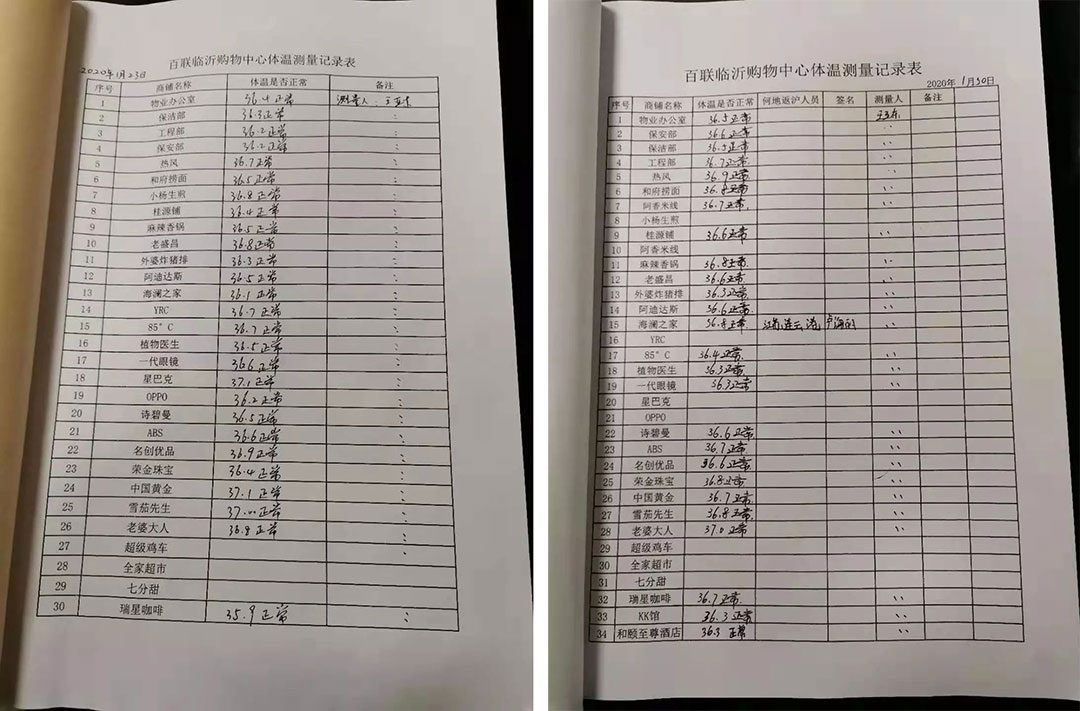 百联临沂购物中心体温测量记录表
2020年1月23日
序号 商铺名称 体温是否正常 备注
1 物业办公室 36.4正常 测量人:
2 保洁部 36.3正常
3 工程部 36.2正常
4 保安部 36.2正常
5 热风 36.7正常
6 和府捞面 36.5正常
7 小杨生煎 36.8正常
8 桂源铺 36.4正常
9 麻辣香锅 36.5正常
10 老盛昌 36.8正常
11 外婆炸猪排 36.3正常
12 阿迪达斯 36.5正常
13 海澜之家 36.1正常
14 YRC 36.7正常
15 85°C 36.7正常
16 植物医生 36.5正常
17 一代眼镜 36.6正常
18 星巴克 37.1正常
19 OPPO 36.2正常
20 诗碧曼 36.5正常
21 ABS 36.6正常
22 名创优品 36.9正常
23 荣金珠宝 36.4正常
24 中国黄金 37.1正常
25 雪茄先生 正常
26 老婆大人 36.9正常
27 超级鸡车
28 全家超市
29 七分甜
30 瑞星咖啡 35.9正常
百联临沂购物中心体温测量记录表
2020年1月30日
序号 商铺名称 体温是否正常 何地返沪人员 签名 测量人 备注
1 物业办公室 36.5正常
2 保安部 36.6正常
3 保洁部 36.5正常
4 工程部 36.7正常
5 热风 36.9正常
6 和府捞面 36.8正常
7 阿香米线 36.7正常
8 小杨生煎
9 桂源铺 36.6正常
10 阿香米线
11 麻辣香锅 36.8正常
12 老盛昌 36.6正常
13 外婆炸猪排 36.3正常
14 阿迪达斯 36.6正常
15 海澜之家 36.8正常 江苏连云港
16 YRC
17 85°C 36.4正常
18 植物医生 36.3正常
19 一代眼镜 36.3正常
20 星巴克
21 OPPO
22 诗碧曼 36.6正常
23 ABS 36.7正常
24 名创优品 36.6正常
25 荣金珠宝 36.8正常
26 中国黄金 36.7正常
27 雪茄先生 36.8正常
28 老婆大人 37.0正常
29 超级鸡车
30 全家超市
31 七分甜
32 瑞星咖啡 36.7正常
33 KK馆 36.3正常
34 和颐至尊酒店 36.3正常